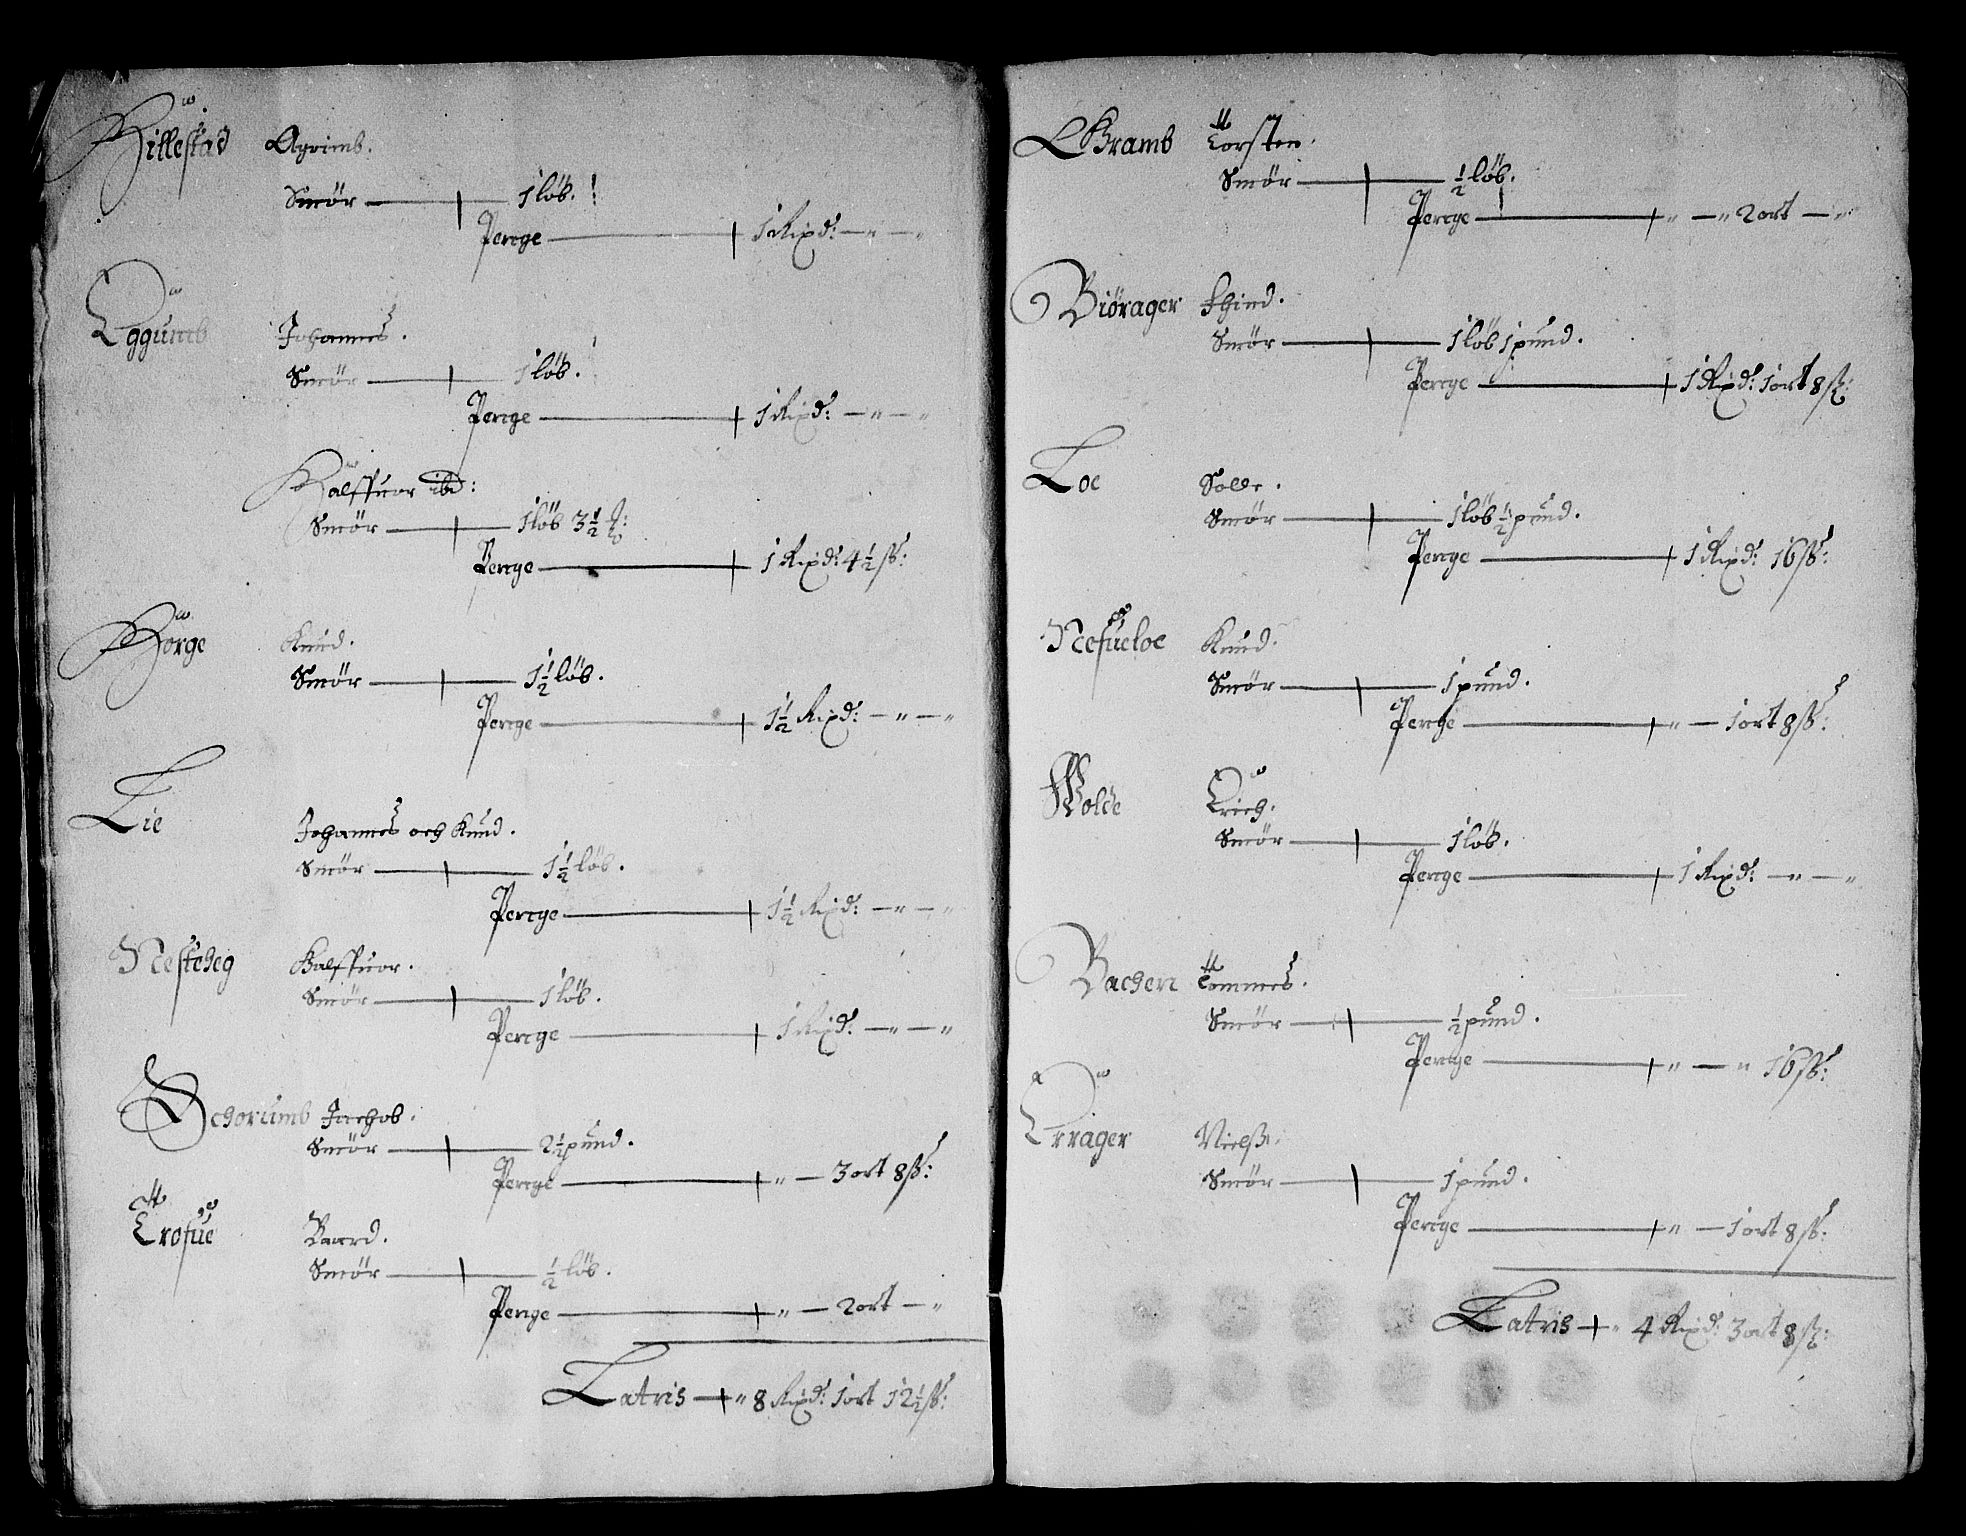 Hillestad Agrimb.
Smör — 1 löb.
Penge — 1 Rixd: — " — "
Eggumb Johannes.
Smör — 1 löb.
Penge — 1 Rixd: — " — "
Halffuor ibd:
Smör — 1 löb 3½ ℔:
Penge — 1 Rixd: 4½ ß:
Hörge Knud.
Smör — 1½ löb.
Penge — 1½ Rixd: — " — "
Lie
Johannes och Knud.
Smör — 1½ löb.
Penge — 1½ Rixd: — " — "
Nesteheg Halffuor.
Smör — 1 löb.
Penge — 1 Rixd: — " — "
Schorumb Jachob.
Smör — 2½ pund.
Penge — " — 3 ort 8 ß:
Trofue Baard.
Smör — ½ löb.
Penge — " — 2 ort — "
Latris — " 8 Rixd: 1 ort 12½ ß:
Gramb Torsten.
Smör — ½ löb.
Penge — " — " 2 ort — "
Biörager Ehind.
Smör — 1 löb 1 pund.
Penge — 1 Rixd: 1 ort 8 ß:
Loe Solle.
Smör — 1 löb ½ pund.
Penge — 1 Rixd: 16 ß:
Nefueloe Knud.
Smör — 1 pund.
Penge — " — 1 ort 8 ß:
Wolde Erich.
Smör — 1 löb.
Penge — 1 Rixd: — " — "
Bachen Tommes.
Smör — ½ pund.
Penge — " — " 16 ß:
Errager Nielß.
Smör — 1 pund.
Penge — " — 1 ort 8 ß:
Latris — " 4 Rixd: 3 ort 8 ß: